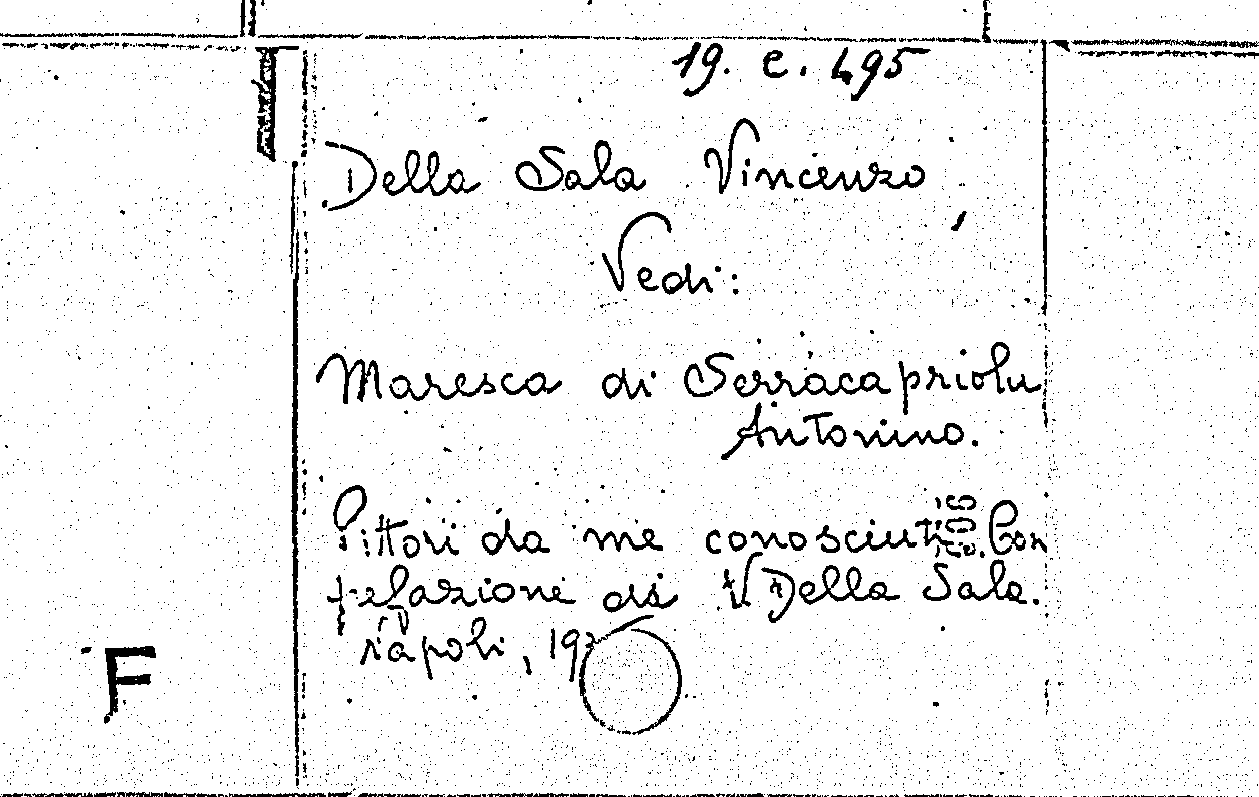 19. e. 495
Della Sala Vincenzo
Vedi:
Maresca di Serracapriola
Antonino.
Pittori da me conosciuti. Con
prefazione di V Della Sala.
Napoli, 19
F